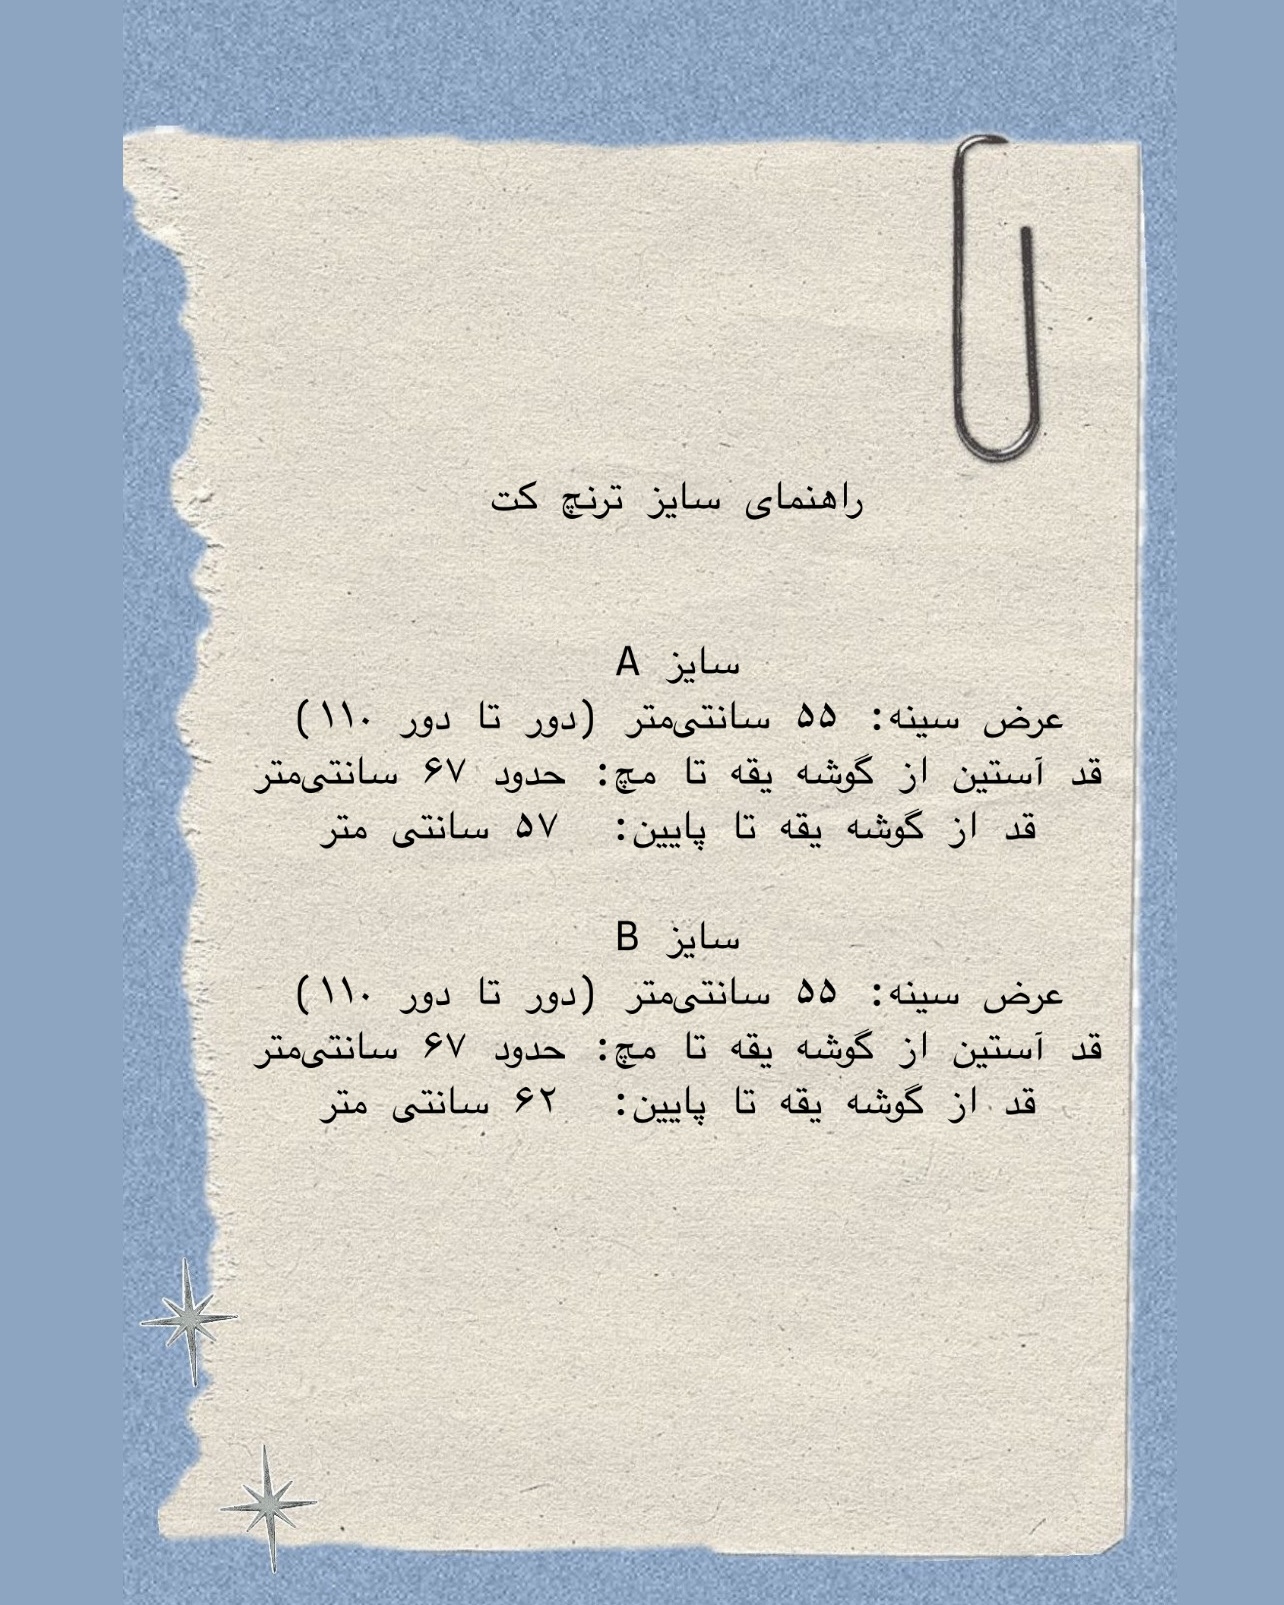 راهنمای سایز ترنچ کت
سایز A
عرض سینه: ۵۵ سانتی‌متر (دور تا دور ۱۱۰)
قد آستین از گوشه یقه تا مچ: حدود ۶۷ سانتی‌متر
قد از گوشه یقه تا پایین: ۵۷ سانتی متر
سایز B
عرض سینه: ۵۵ سانتی‌متر (دور تا دور ۱۱۰)
قد آستین از گوشه یقه تا مچ: حدود ۶۷ سانتی‌متر
قد از گوشه یقه تا پایین: ۶۲ سانتی متر